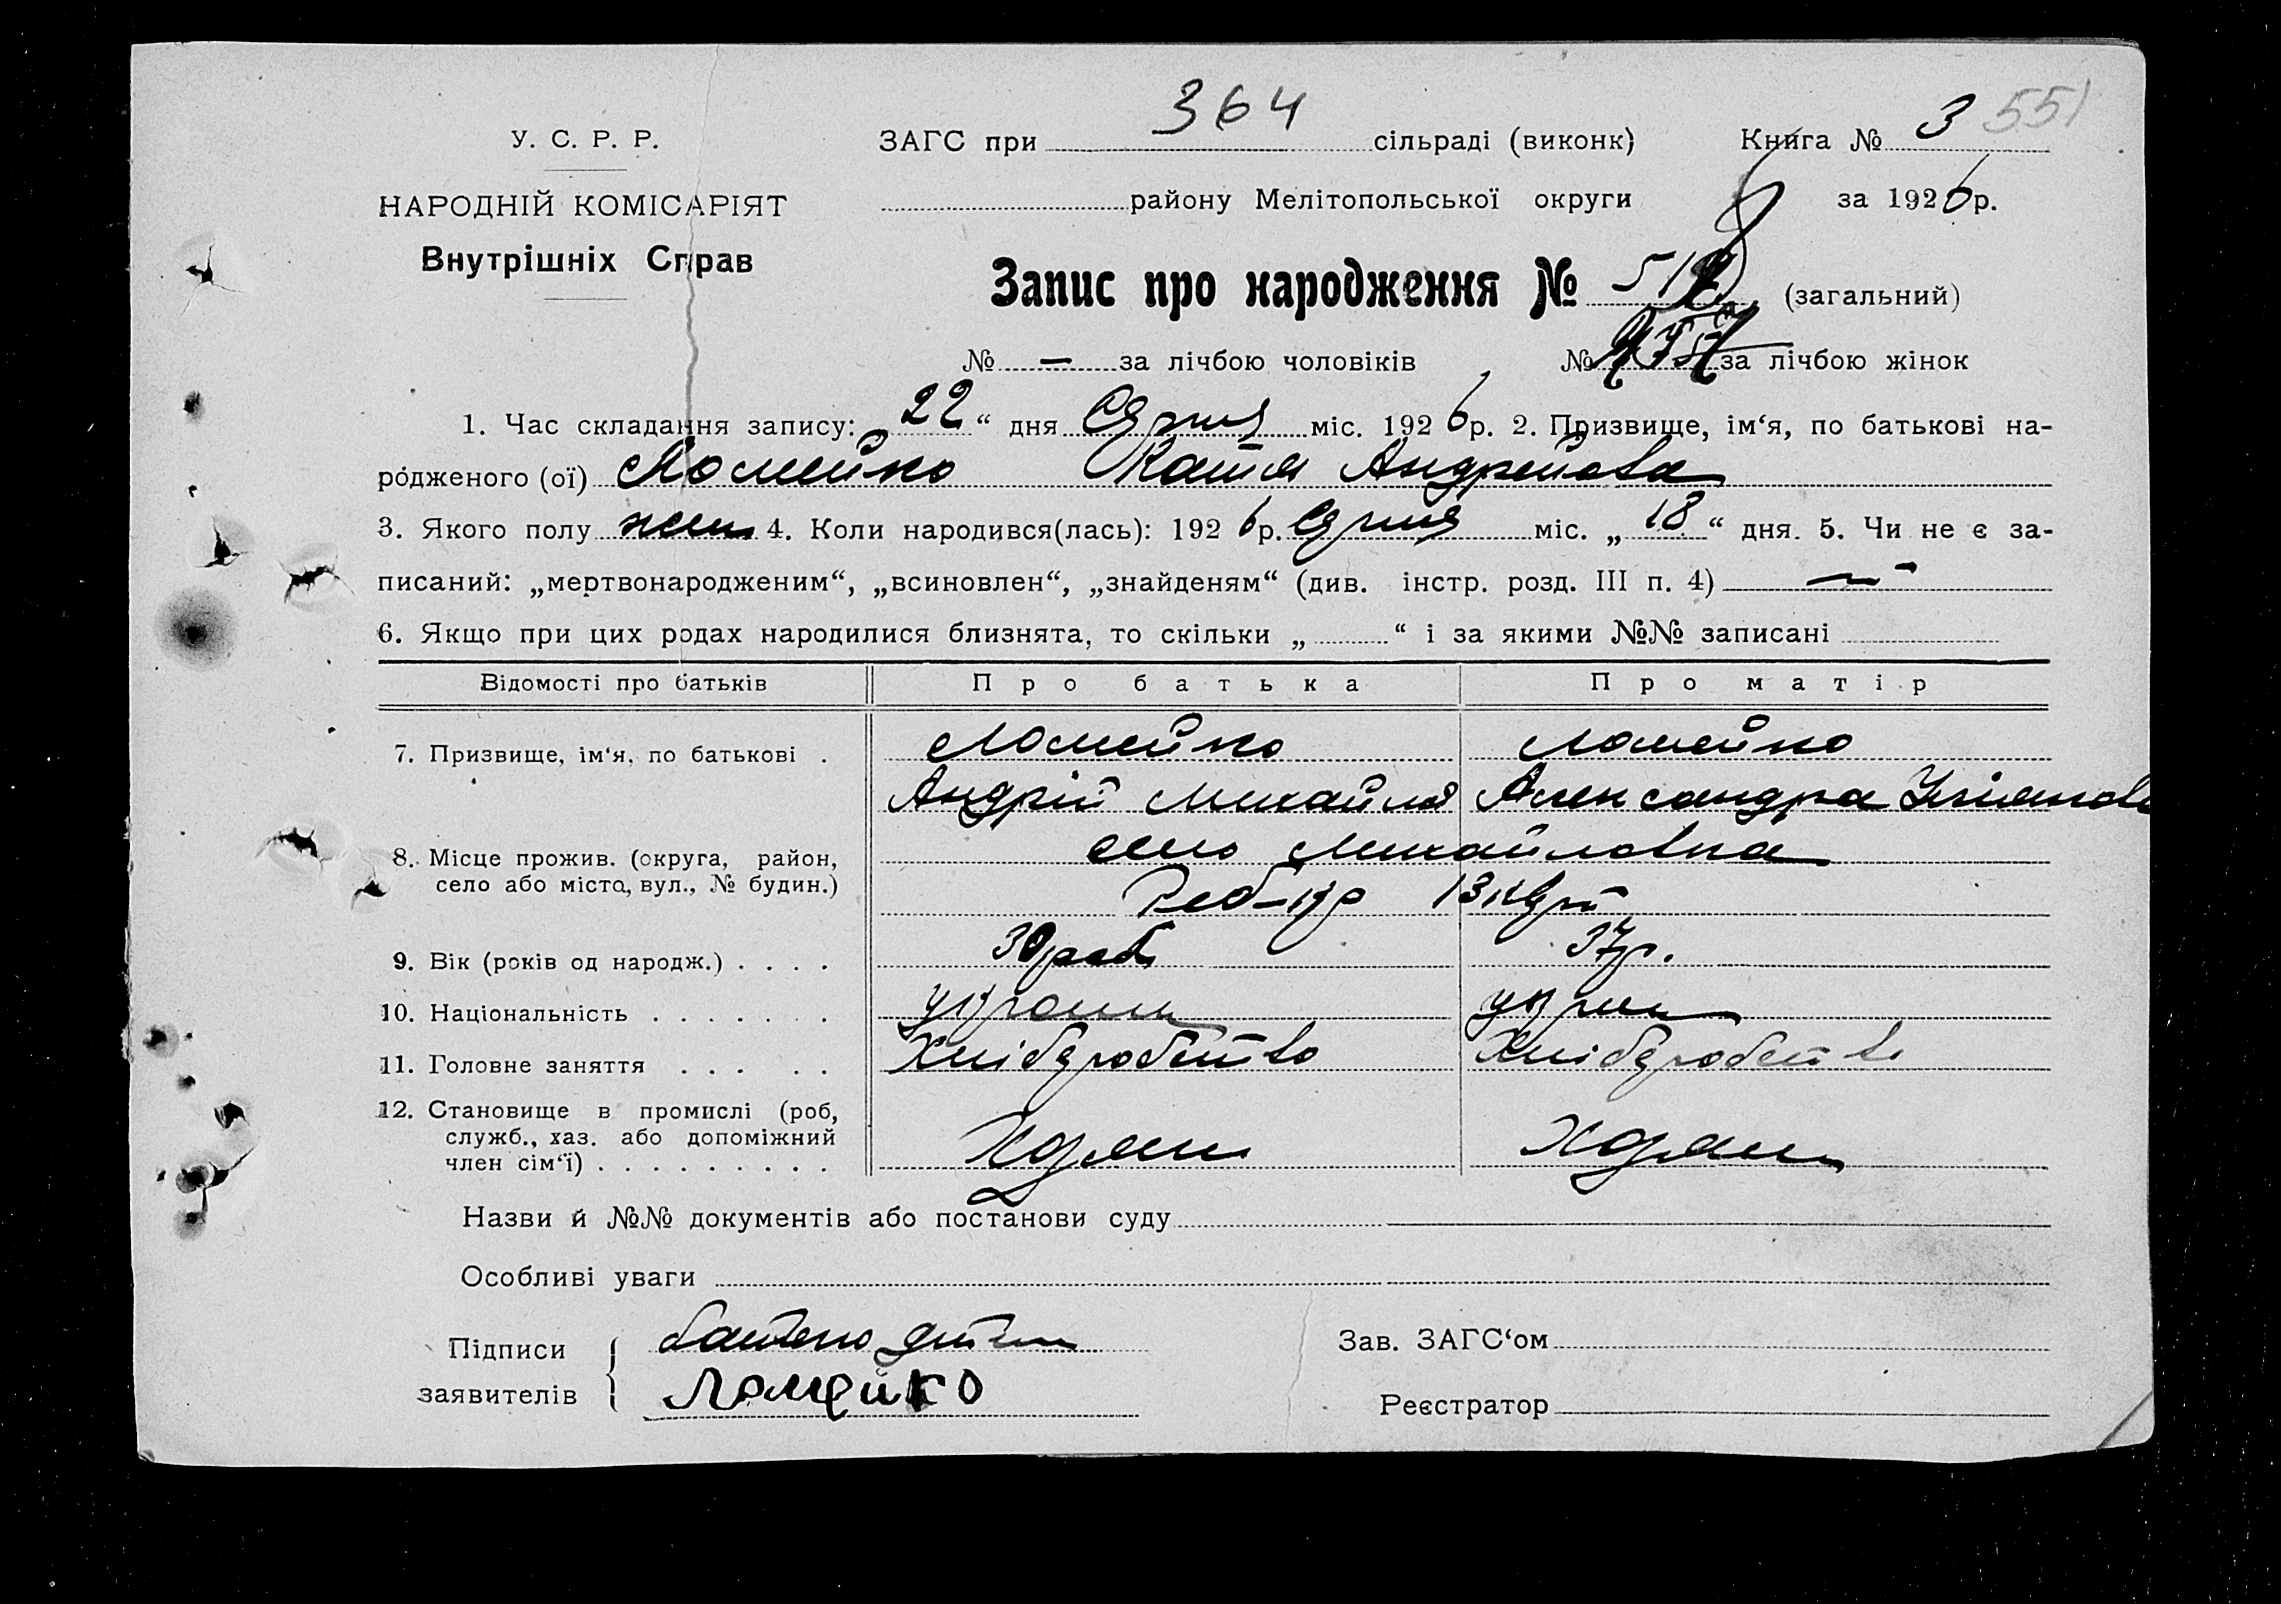 364
551
У. С. Р. Р.
ЗАГС при сільраді (виконк) Книга № 3
НАРОДНІЙ КОМІСАРІЯТ
району Мелітопольської округи за 1926 р.
Внутрішніх Справ
Запис про народження № (загальний)
№ — за лічбою чоловіків № за лічбою жінок
1. Час складання запису: 22 “ дня Серпня міс. 1926 р. 2. Призвище, ім‘я, по батькові на-
родженого (ої) Ломейко Катя Андрейовa
3. Якого полу жен 4. Коли народився(лась): 1926 р. Серпня міс. „ 18 “ дня. 5. Чи не є за-
писаний: „мертвонародженим“, „всиновлен“, „знайденям“ (див. інстр. розд. III п. 4) —
6. Якщо при цих родах народилися близнята, то скільки „ “ і за якими №№ записані
Відомості про батьків Про батька Про матір
7. Призвище, ім‘я, по батькові . Ломейко Ломейко
Андрій Михайлов Александра
8. Місце прожив. (округа, район, село Михайловка
село або місто, вул., № будин.)
9. Вік (років од народж.) . . . . 37р.
10. Національність . . . . . . . україн україн
11. Головне заняття . . . . . Хлібробство Хлібробство
12. Становище в промислі (роб,
служб., хаз. або допоміжний
член сім‘ї) . . . . . . . . . .
Назви й №№ документів або постанови суду
Особливі уваги
Підписи батько дитини Зав. ЗАГС‘ом
заявителів Ломейко Реєстратор